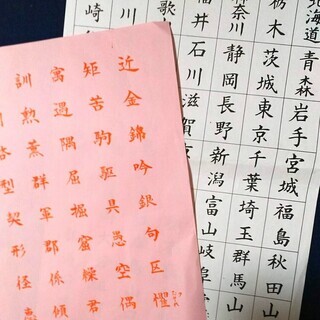 北海道
青森
岩手
宮城
福島
秋田
山
栃木
茨城
東京
千葉
埼玉
群馬
山
奈川
静岡
長野
新潟
富山
岐阜
福井
石川
滋賀
歌山
川
崎
近金錦吟銀句区
矩苦駒駆具愚空偶
寓遇隅屈掘窟繰君
訓勲薫群軍郡係傾
型契形径